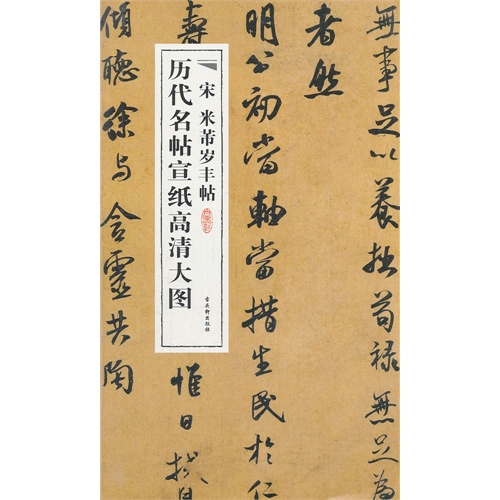 無事足以養拙苟祿無足為
者然
明公初當軸當措生民於仁
壽
惟日拭
傾聽徐与含靈共陶
宋 米芾岁丰帖
历代名帖宣纸高清大图
古吴轩出版社